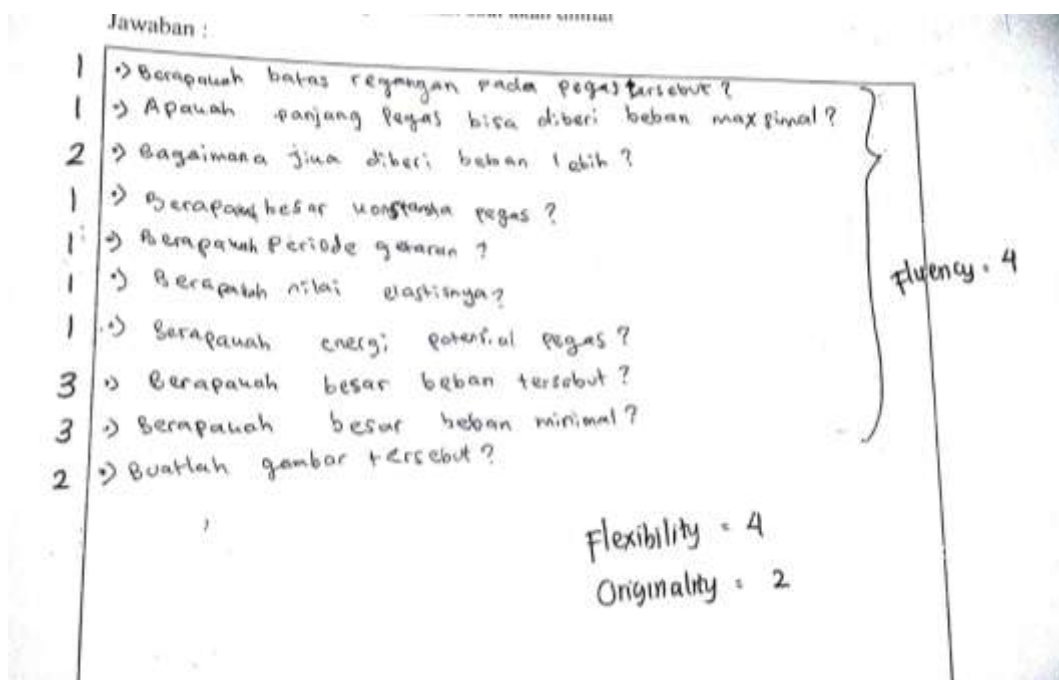 Jawaban :
1 •) Berapakah batas regangan pada pegas tersebut ?
1 •) Apakah panjang pegas bisa diberi beban maxsimal ?
2 •) Bagaimana jika diberi beban lebih ?
1 •) Berapakah besar konstanta pegas ?
1 •) Berapakah Periode getaran ?
1 •) Berapakah nilai elastisnya ?
1 •) Berapakah energi potensial pegas ?
3 •) Berapakah besar beban tersebut ?
3 •) Berapakah besar beban minimal ?
2 •) Buatlah gambar tersebut ?
Fluency = 4
Flexibility = 4
Originality = 2